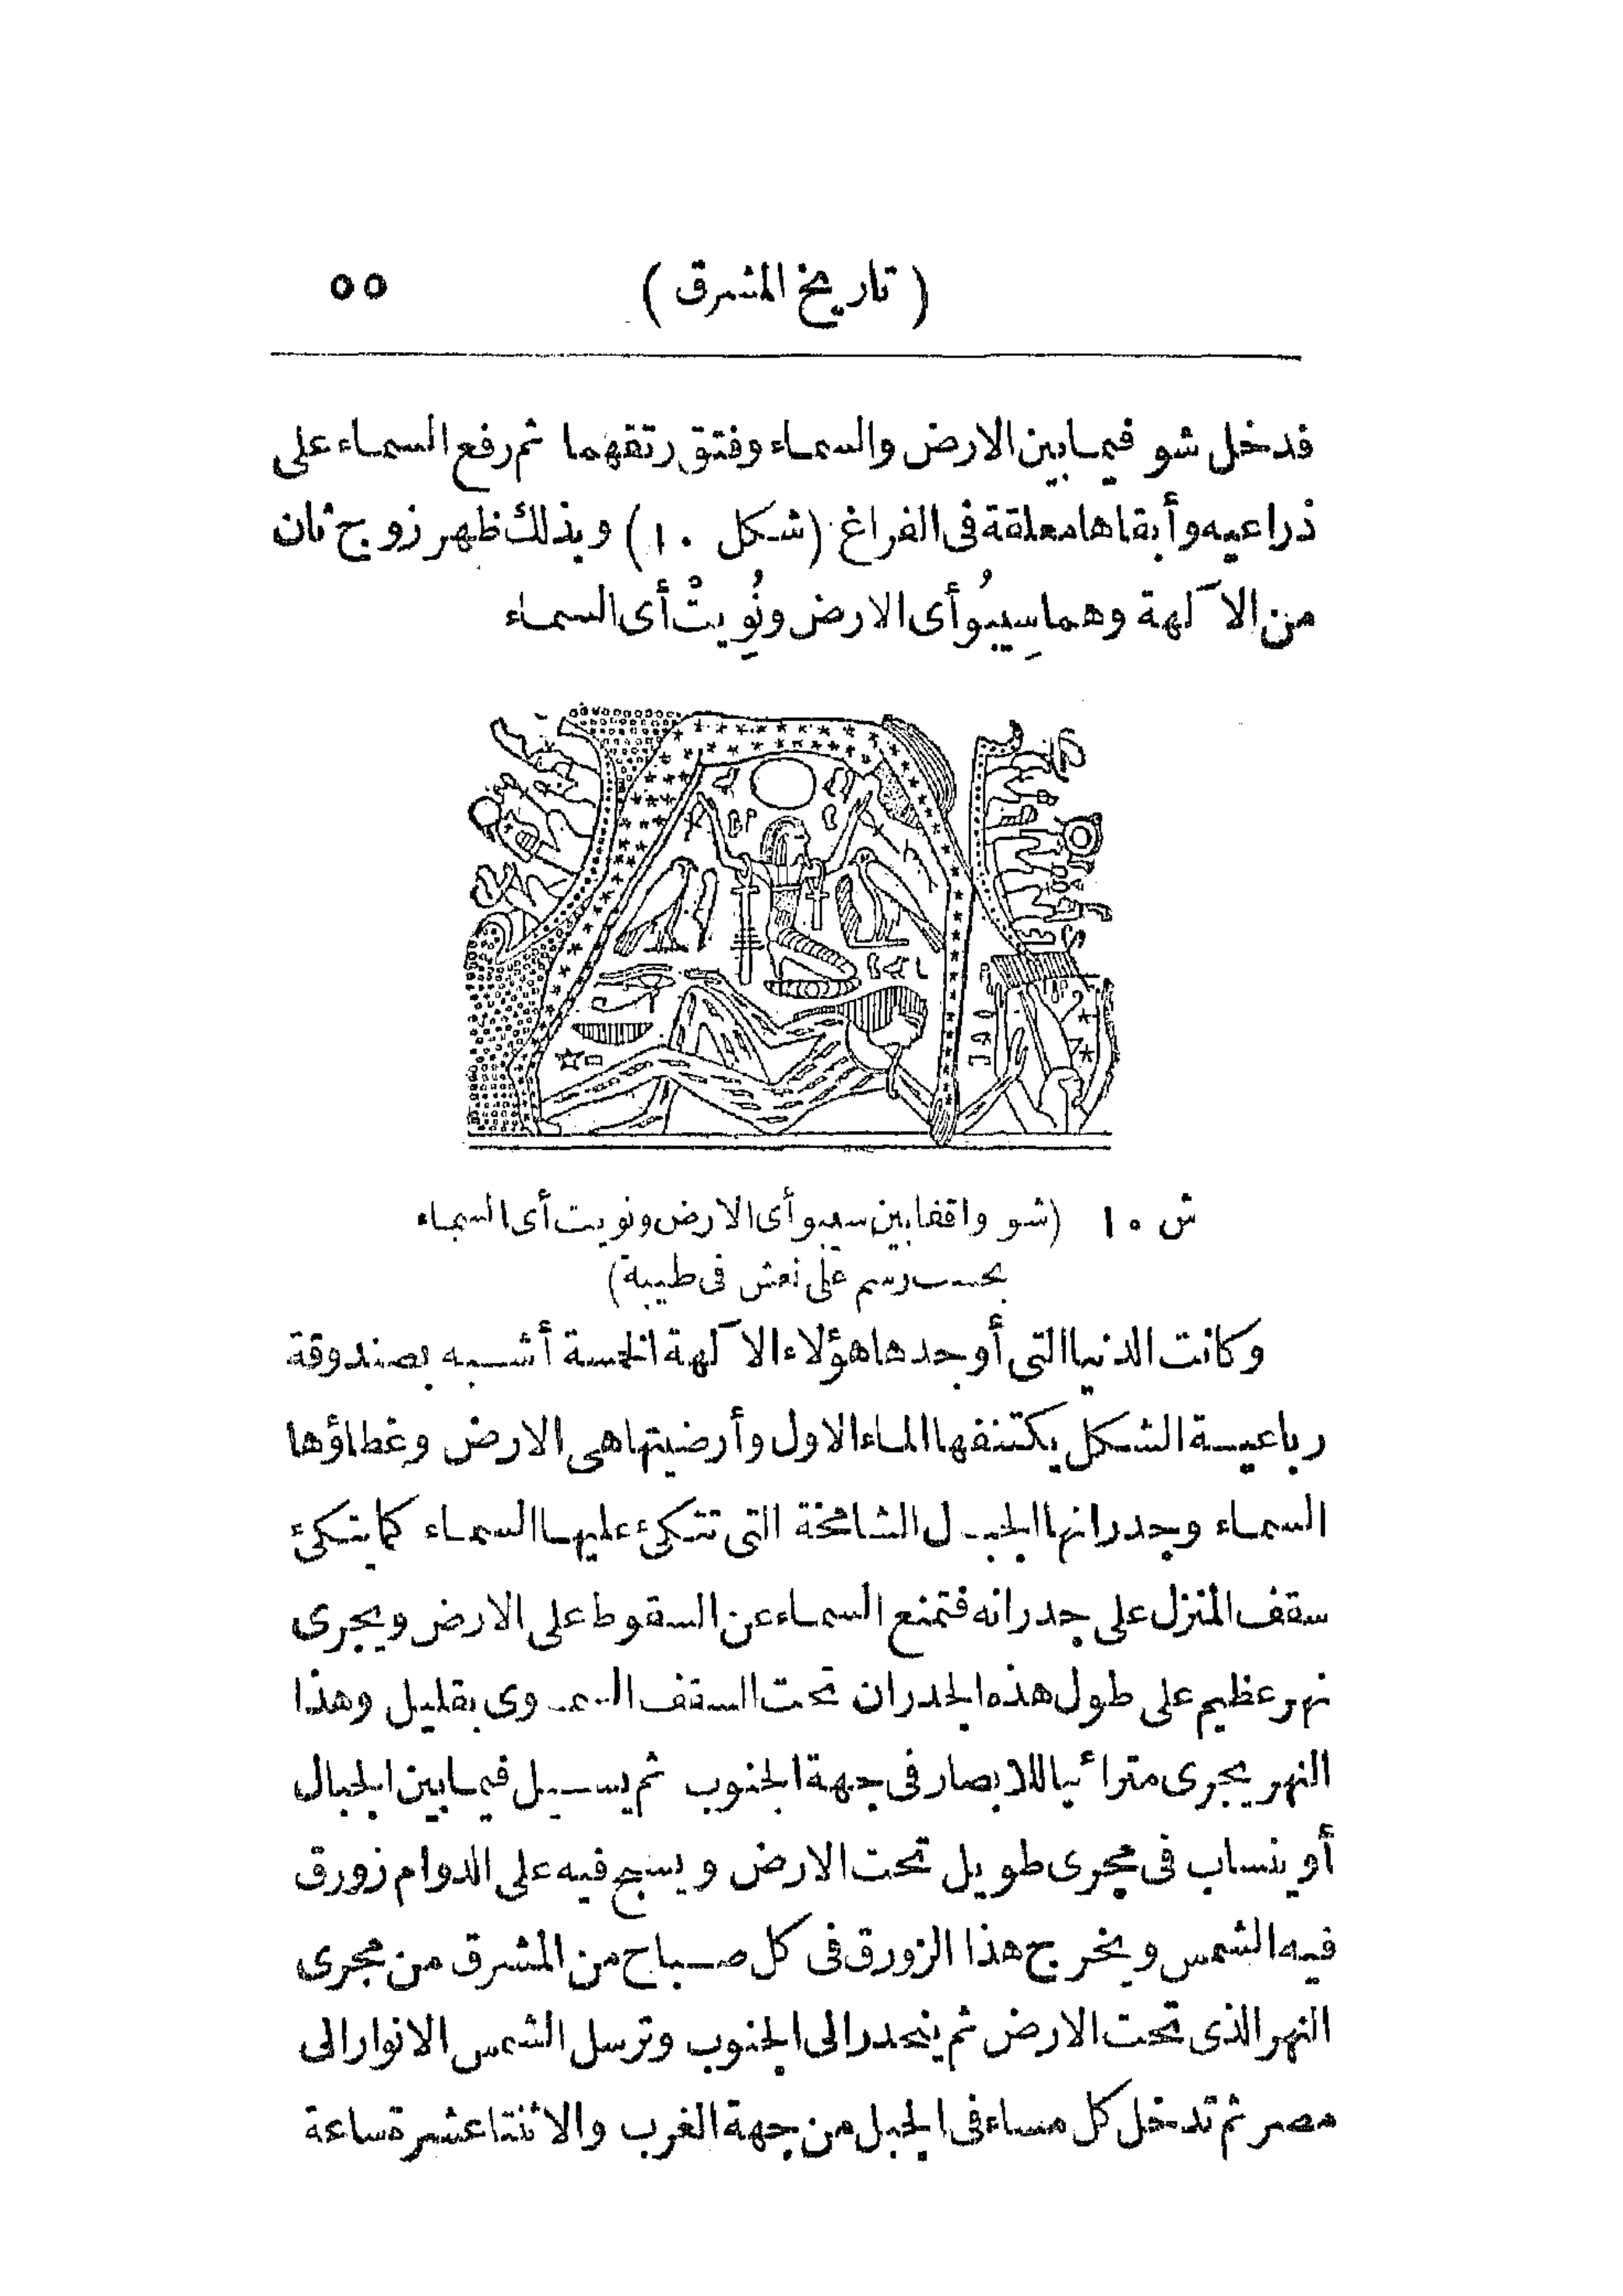 (تاريخ المشرق) ٥٥
فدخل شو فيما بين الارض والسماء وفتق رتقهما ثم رفع السماء على
ذراعيه وأبقاها معلقة فى الفراغ (شكل ١٠) وبذلك ظهر زوج ثان
من الآلهة وهما سِيبُو أى الارض ونُوِيتْ أى السماء
ش ١٠ (شو واقفا بين سيبو أى الارض ونويت أى السماء
بحسب رسم على نعش فى طيبة)
وكانت الدنيا التى أوجدها هؤلاء الآلهة الخمسة أشبه بصندوقة
رباعية الشكل يكتنفها الماء الاول وأرضيتها هى الارض وغطاؤها
السماء وجدرانها الجبال الشامخة التى تتكئ عليها السماء كما يتكئ
سقف المنزل على جدرانه فتمنع السماء عن السقوط على الارض ويجرى
نهر عظيم على طول هذه الجدران تحت السقف السماوى بقليل وهذا
النهر يجرى مترائيا للابصار فى جهة الجنوب ثم يسيل فيما بين الجبال
أو ينساب فى مجرى طويل تحت الارض ويسبح فيه على الدوام زورق
فيه الشمس ويخرج هذا الزورق فى كل صباح من المشرق من مجرى
النهر الذى تحت الارض ثم ينحدر الى الجنوب وترسل الشمس الانوار الى
مصر ثم تدخل كل مساء فى الجبل من جهة الغرب والاثنتا عشرة ساعة